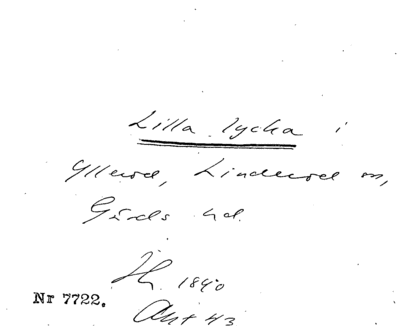 Lilla lycka i
Yllerod, Linderod sn,
Gärds hd.
Jh. 1840
Nr 7722.
Akt 43